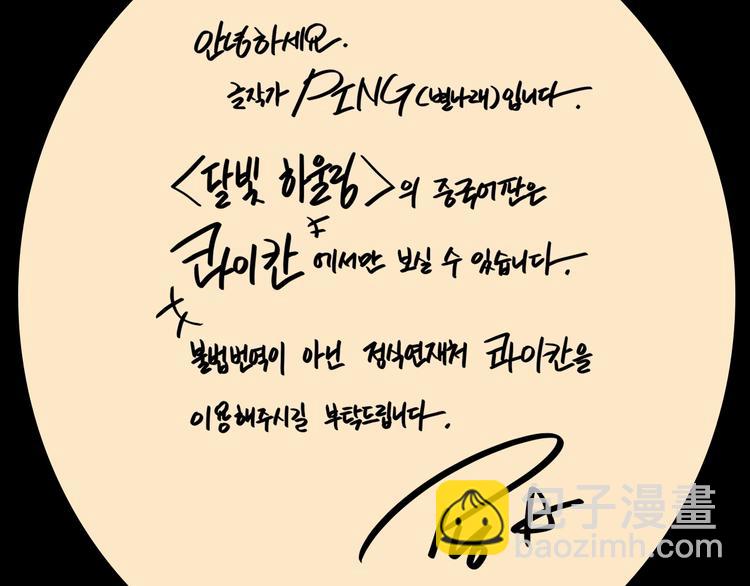 안녕하세요.
글작가 PING(별나래)입니다.
<달빛 하울링>의 중국어판은
콰이칸에서만 보실 수 있습니다.
불법번역이 아닌 정식연재처 콰이칸을
이용해주시길 부탁드립니다.
包子漫畫
baozimh.com